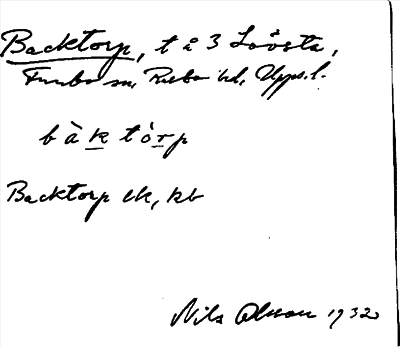 Backtorp, t å 3 Lövsta,
Funbo sn, Rasbo hd, Upps. l.
bàktòrp
Backtorp ek, kb
Nils Olsson 1932